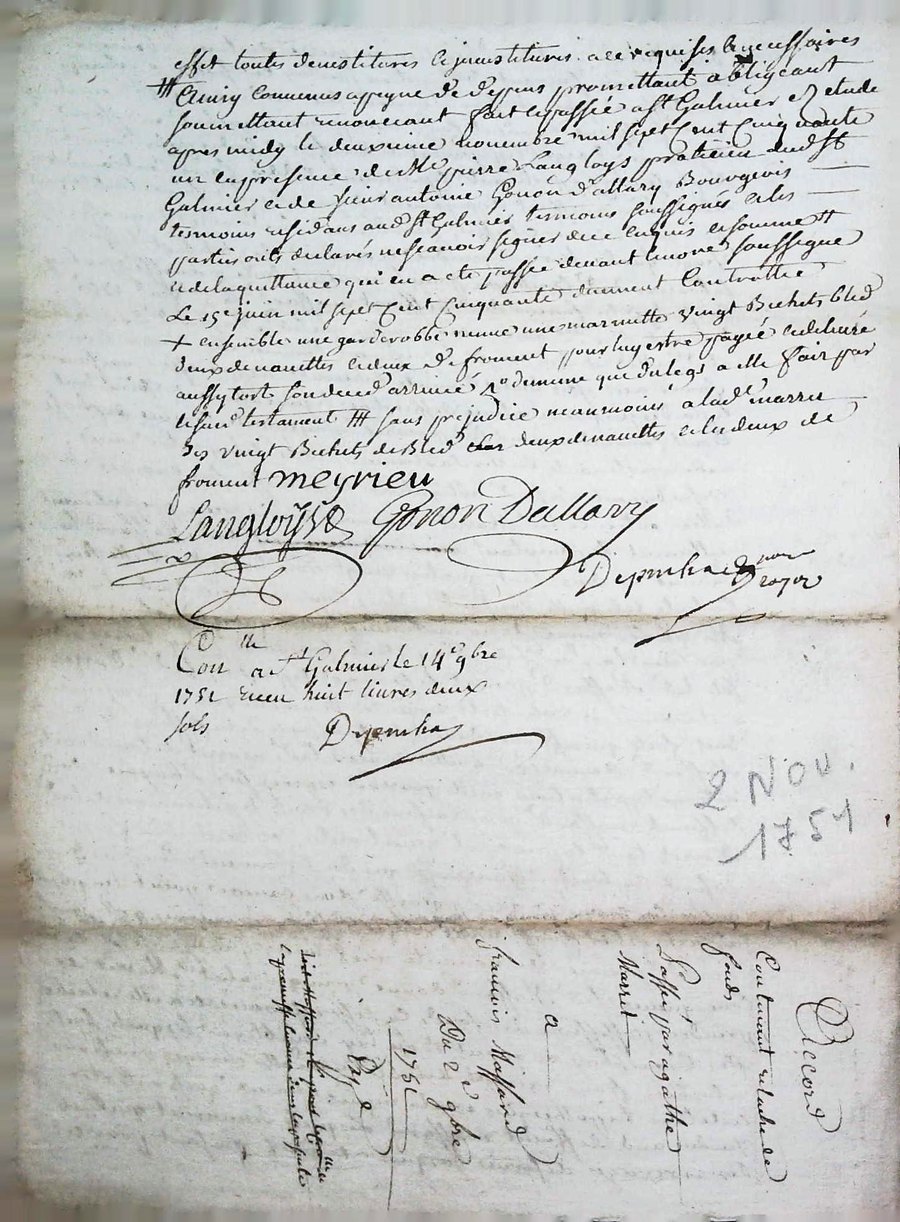 effet toutes devestitures et jnvestitures a ce requises et necessaires
## Ainsy convenus a peyne de depens promettant obligeant
soumettant renonceant fait et passé a st Galmier en etude
apres midy le deuxieme novembre mil sept cent cinquante
un en presence de Me pierre Langloys praticien dud st
Galmier et de sieur antoine Gonon d'allary Bourgeois
tesmoins residans aud st Galmier tesmoins soussignés et les
parties ont declarés ne scavoir signer de ce enquis et somme ++
et de la quittance qui en a eté passée devant le nore soussigné
Le 15e juin mil sept cent cinquante duement Controllée
+ ensemble une garderobbe neuve une marmitte vingt Bichets bled
deux de froment pour luy estre payée et delivré
aussytost son deced arrivé que du legs a elle fait par
led testament ### sans prejudice neanmoins a lad marret
des vingt Bichets de Bled deux et les deux de
froment meyrieu
Langloys Gonon Dallary
Depmha nore royal
Con lle a st Galmier le 14e 9bre
1751 receu huit livres deux
sols Depmha
2 NOV.
1751
Accord
Contenant relache de
fonds
passé par agathe
Marret
a
francois Massard
Du 2e 9bre
1751